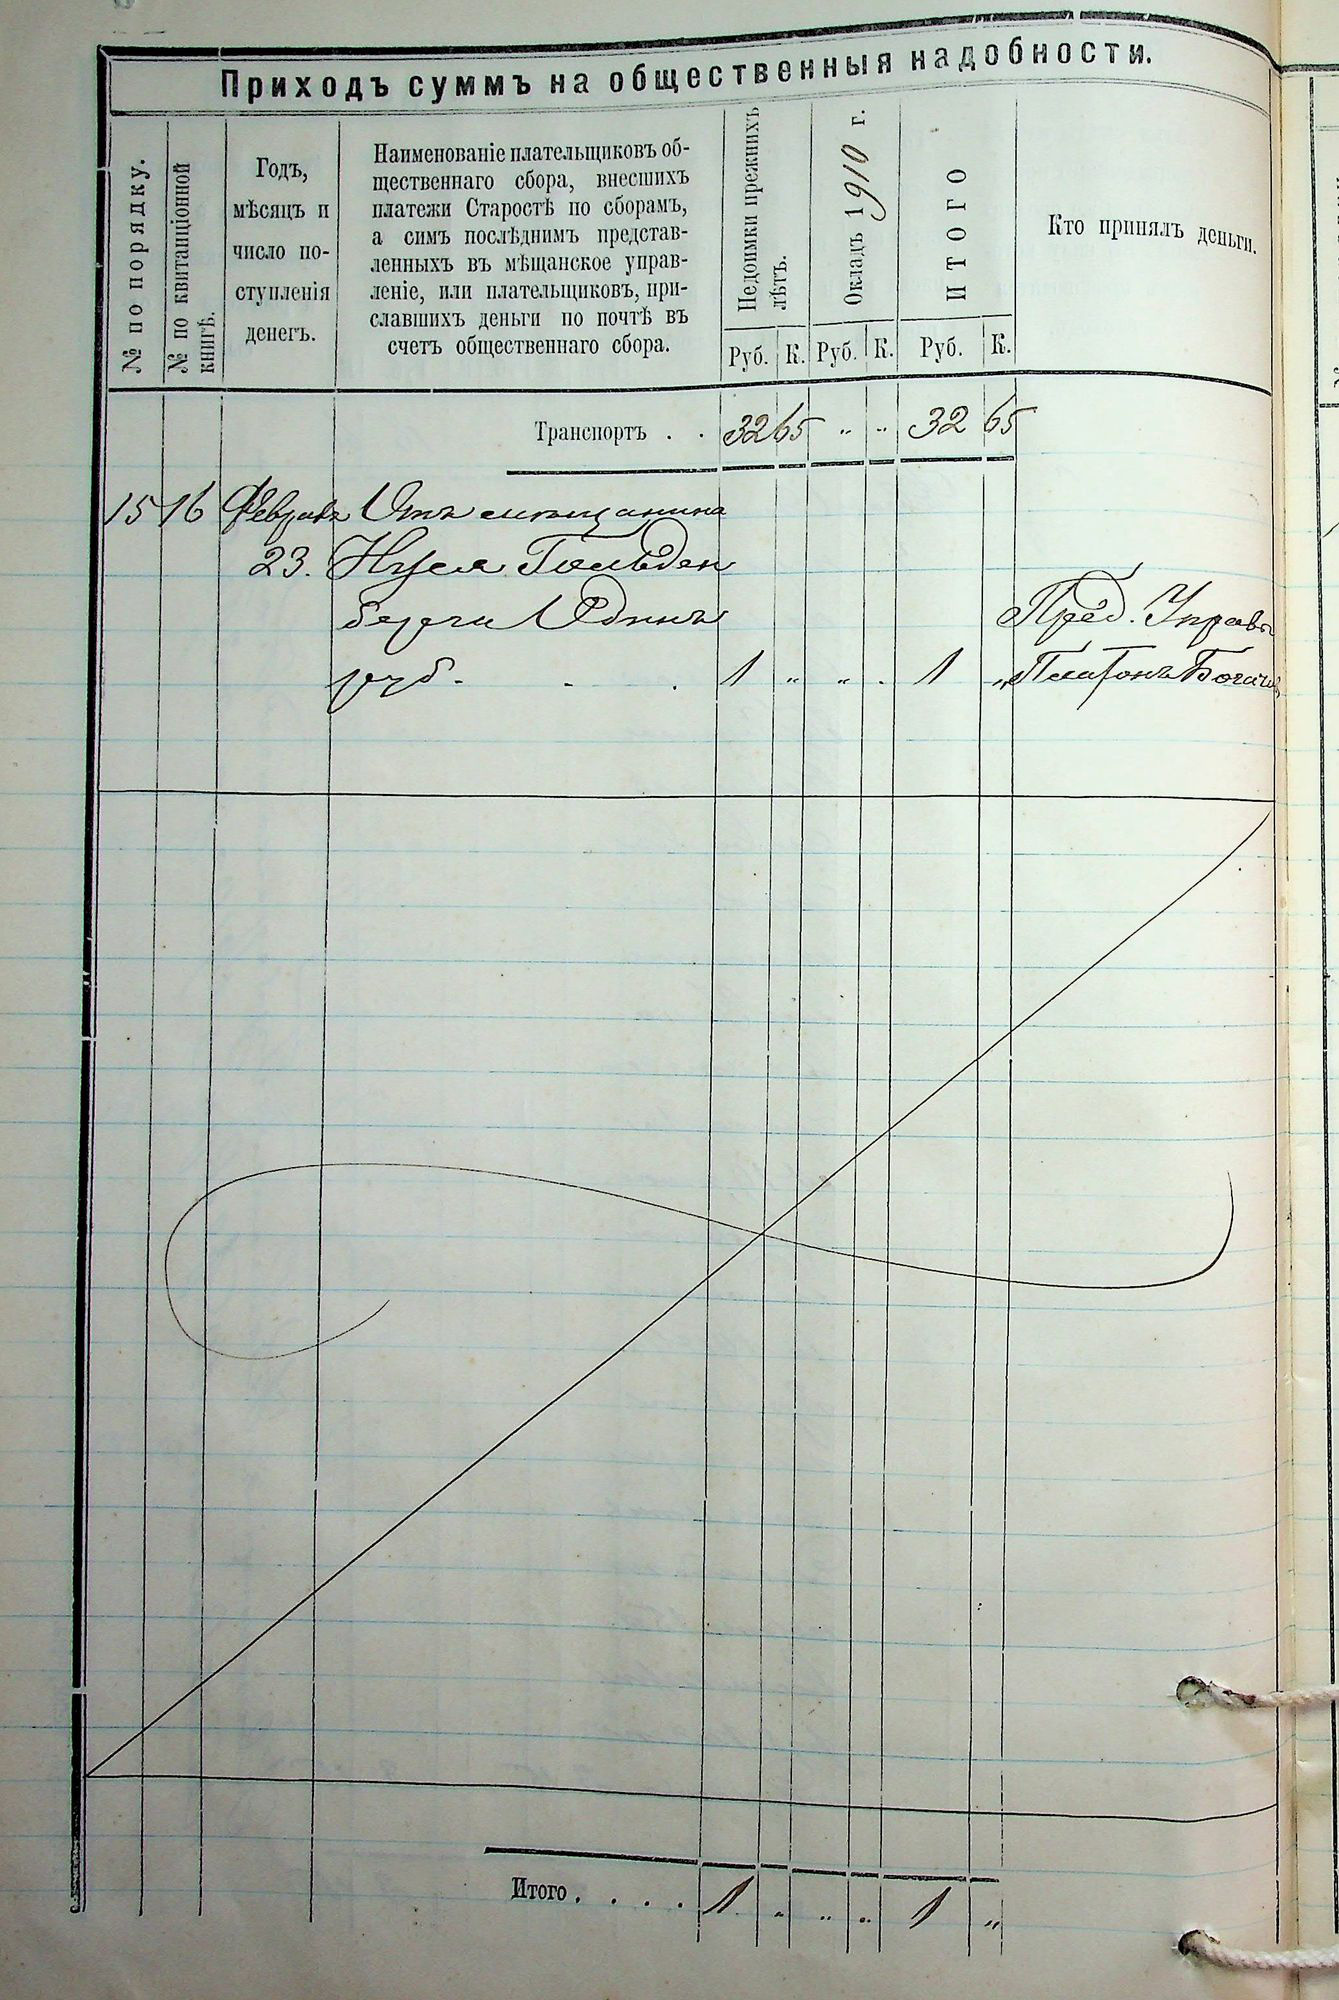 Приходъ суммъ на общественныя надобности.
№ по порядку.
№ по квитанціонной
книгѣ.
Годъ,
мѣсяцъ и
число по-
ступленія
денегъ.
Наименованіе плательщиковъ об-
щественнаго сбора, внесшихъ
платежи Старостѣ по сборамъ,
а симъ послѣднимъ представ-
ленныхъ въ мѣщанское управ-
леніе, или плательщиковъ, при-
славшихъ деньги по почтѣ въ
счетъ общественнаго сбора.
Недоимки прежнихъ
лѣтъ.
Окладъ 1910 г.
ИТОГО
Кто принялъ деньги.
Руб. К. Руб. К. Руб. К.
Транспортъ . . 32 65 „ „ 32 65
15 16 Февраль Отъ мѣщанина
23. Нуся Гольден
берги Одинъ Пред. Управы
руб. . . 1 „ „ . 1 „ Платонъ
Итого . . . . 1 „ „ „ 1 „